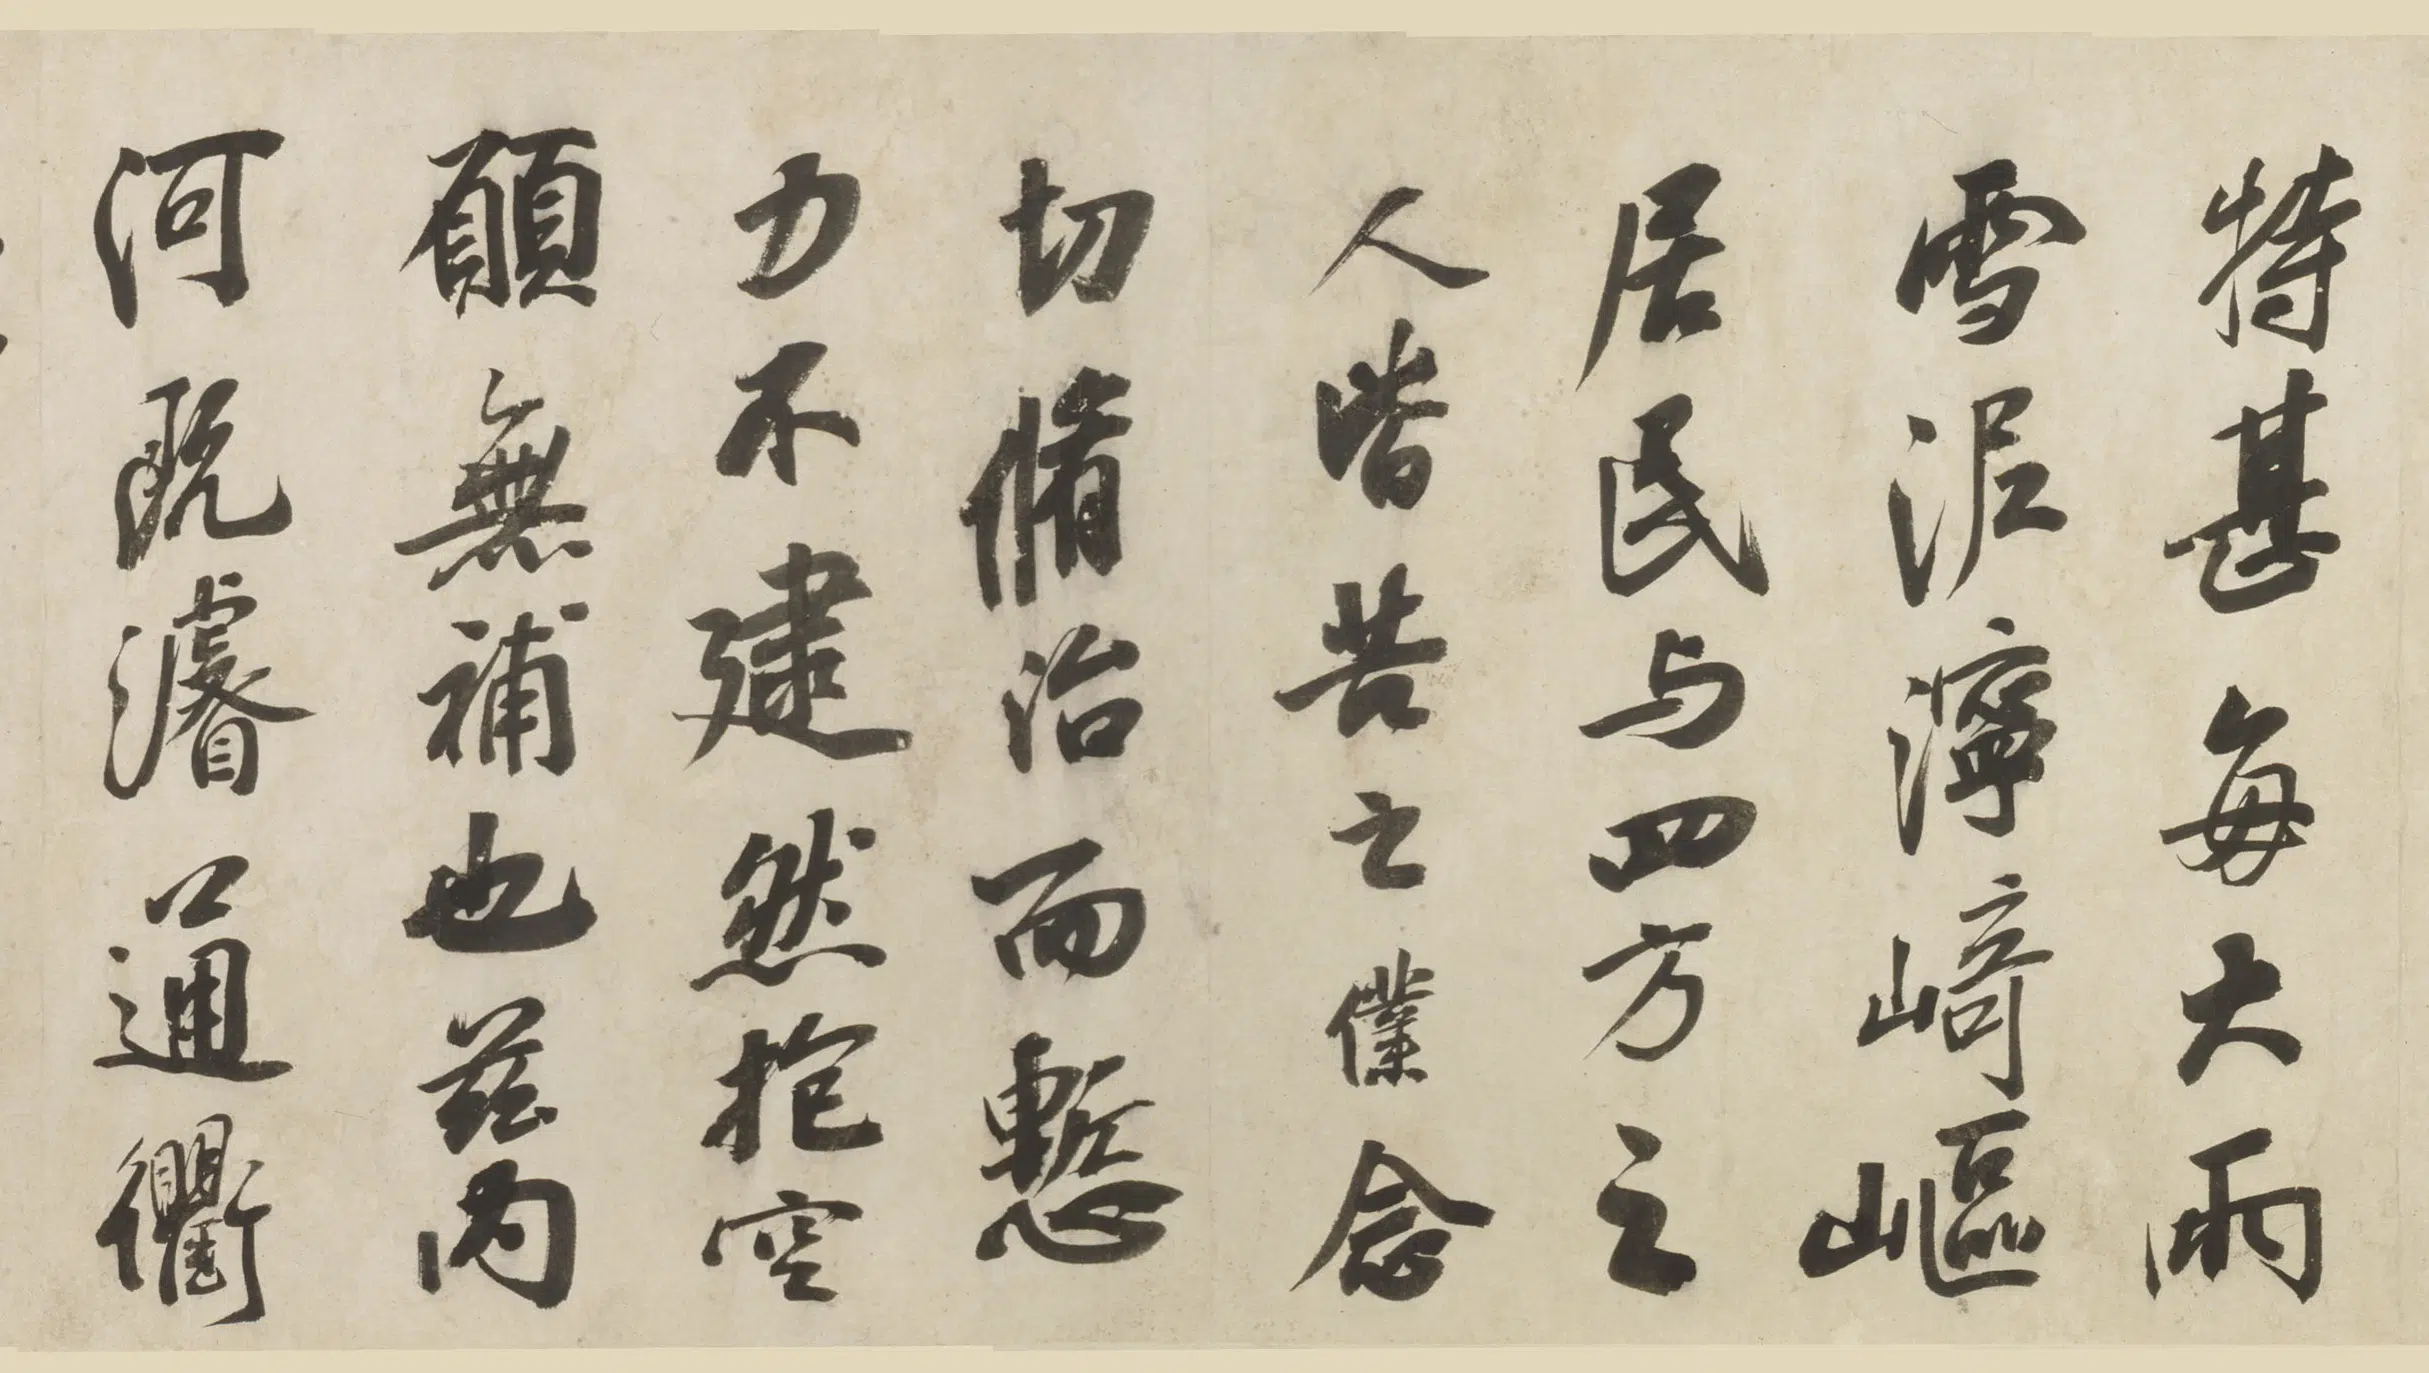 特甚每大雨
雪泥濘崎嶇
居民与四方之
人皆苦之僕念
切脩治而慙
力不逮然抱空
願無補也茲内
河既濬通衢